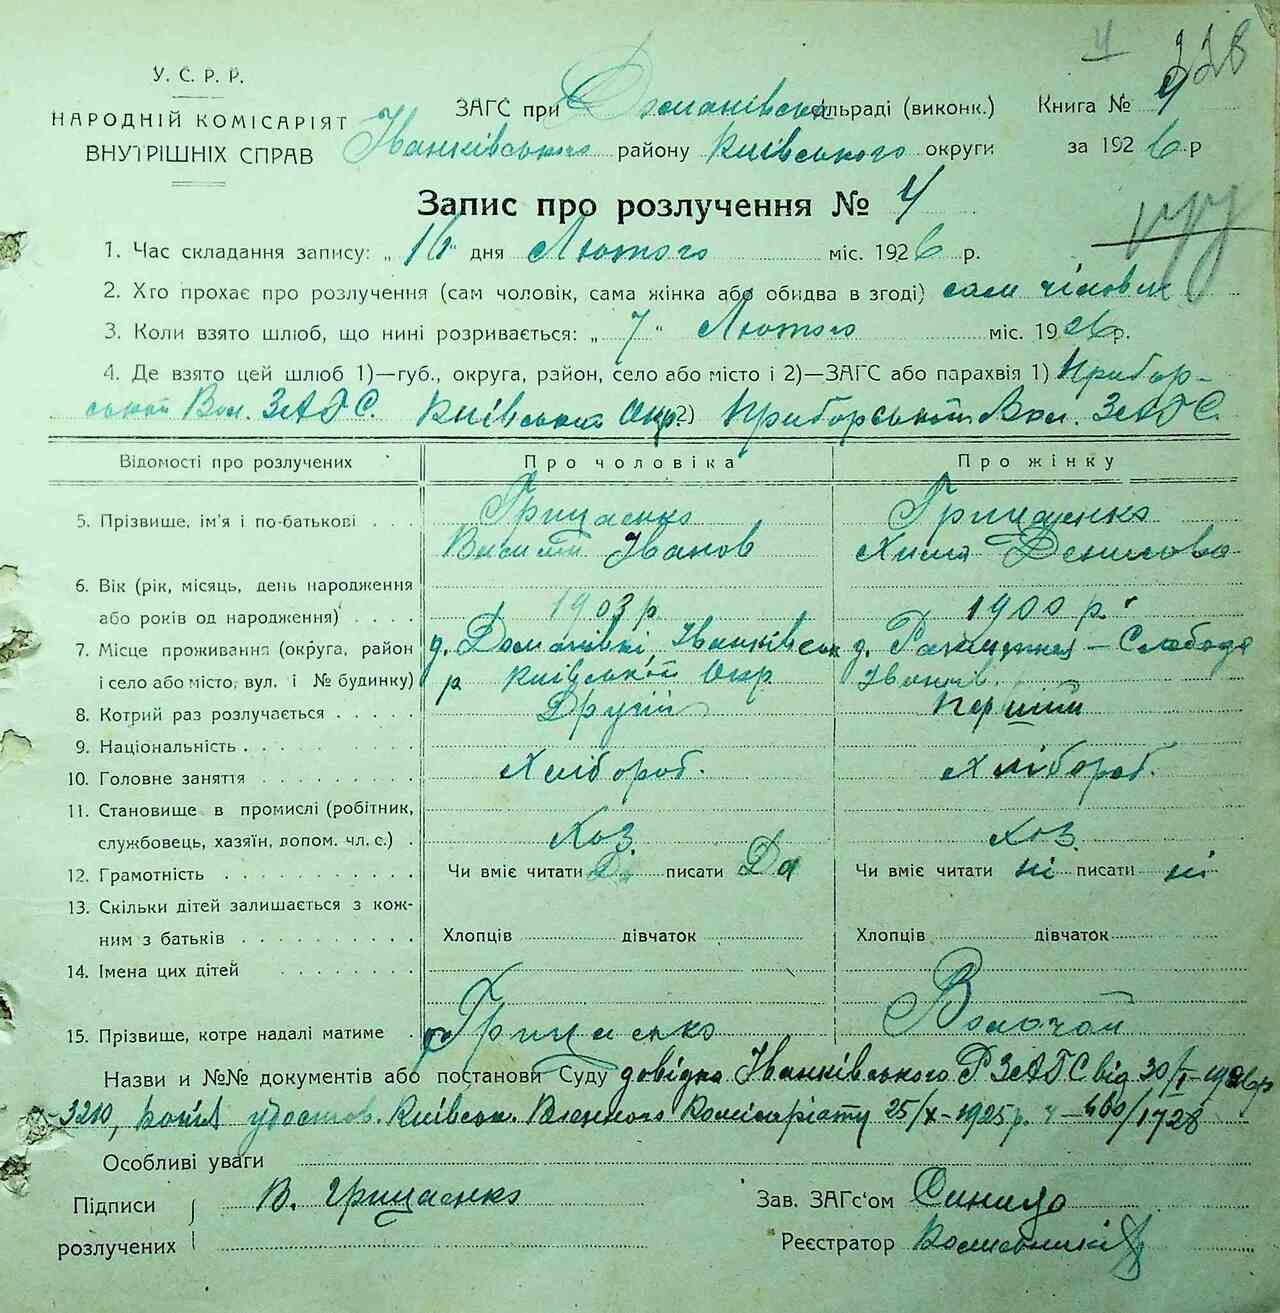 4 228
У. С. Р. Р.
НАРОДНІЙ КОМІСАРІЯТ
ВНУТРІШНІХ СПРАВ
ЗАГС при Домановськ сільраді (виконк.) Книга №
Іванківського району Київського округи за 1926 р
Запис про розлучення № 4
1. Час складання запису: „ 16 " дня Лютого міс. 1926 р.
2. Хто прохає про розлучення (сам чоловік, сама жінка або обидва в згоді) сам чіловік
3. Коли взято шлюб, що нині розривається: „ 7 " Лютого міс. 1926 р.
4. Де взято цей шлюб 1)—губ., округа, район, село або місто і 2)—ЗАГС або парахвія 1) Прибор-
ський Вол. ЗАГС. Київськой Окр. 2) Приборський Вол. ЗАГС.
Відомості про розлучених Про чоловіка Про жінку
5. Прізвище, ім'я і по-батькові Грищенко Грищенко
Василь Іванов Денисова
6. Вік (рік, місяць, день народження
або років од народження) 1903 р. 1900 р.
7. Місце проживання (округа, район д. Доманівкі, Іванківськ д. Слобода
і село або місто, вул. і № будинку) р Київськой Окр Іванків.
8. Котрий раз розлучається Другий Перший
9. Національність
10. Головне заняття Хлібороб. Хлібороб.
11. Становище в промислі (робітник,
службовець, хазяїн, допом. чл. с.) Хоз. Хоз.
12. Грамотність Чи вміє читати писати Да Чи вміє читати ні писати ні
13. Скільки дітей залишається з кож-
ним з батьків Хлопців дівчаток Хлопців дівчаток
14. Імена цих дітей
15. Прізвище, котре надалі матиме Грищенко Волочай
Назви и №№ документів або постанови Суду довідка Іванківського РЗАГС від 30/I-1926 р
3210, копія удостов. Київськ. Воєнного Комісаріату 25/X-1925 р. ч-460/1728
Особливі уваги
Підписи В. Грищенко Зав. ЗАГс'ом Синица
розлучених Реєстратор